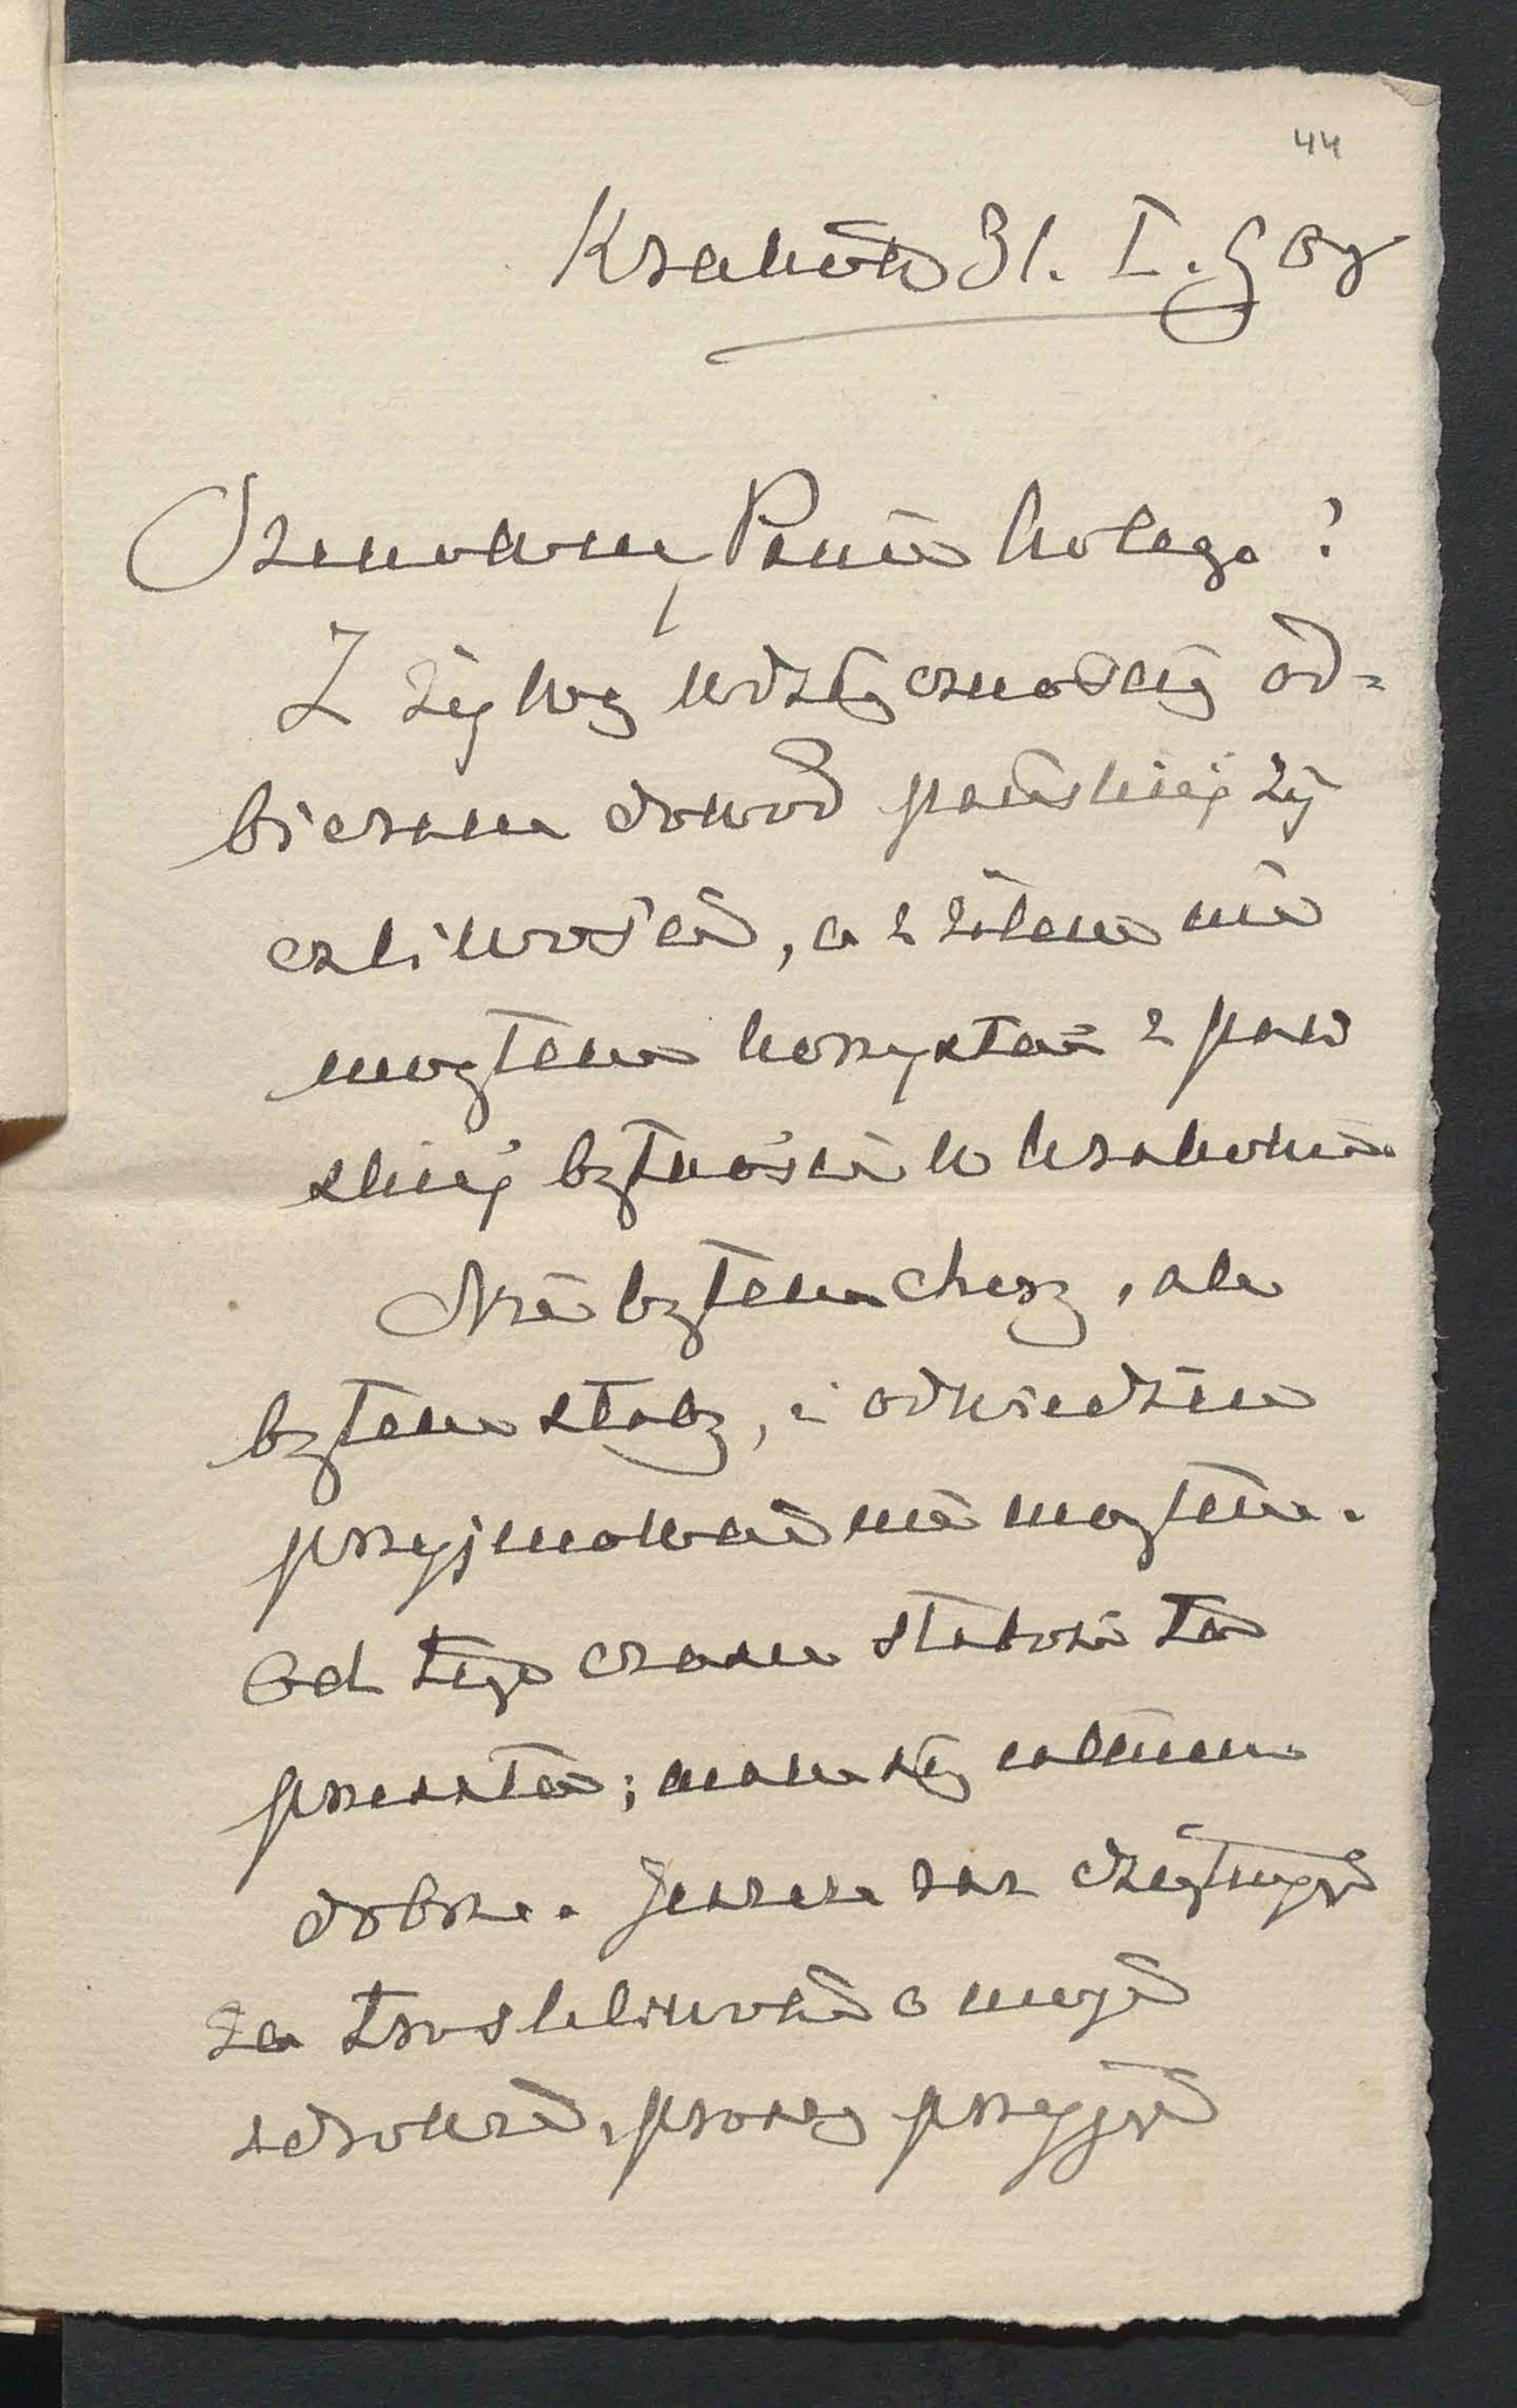 44
Kraków 31. I. 909
Szanowny Panie kolego!
Z żywą wdzięcznością od=
bieram dowód pańskiej ży
czliwości, a z żalem nie
mogłem korzystać z pań
skiej bytności w Krakowie.
Nie byłem chory, ale
byłem słaby, i odwiedzin
przyjmować nie mogłem.
Od tego czasu słabość ta
przeszła; mam się całkiem
dobrze. Jeszcze raz dziękuję
za troskliwość o moje
zdrowie, proszę przyjąć